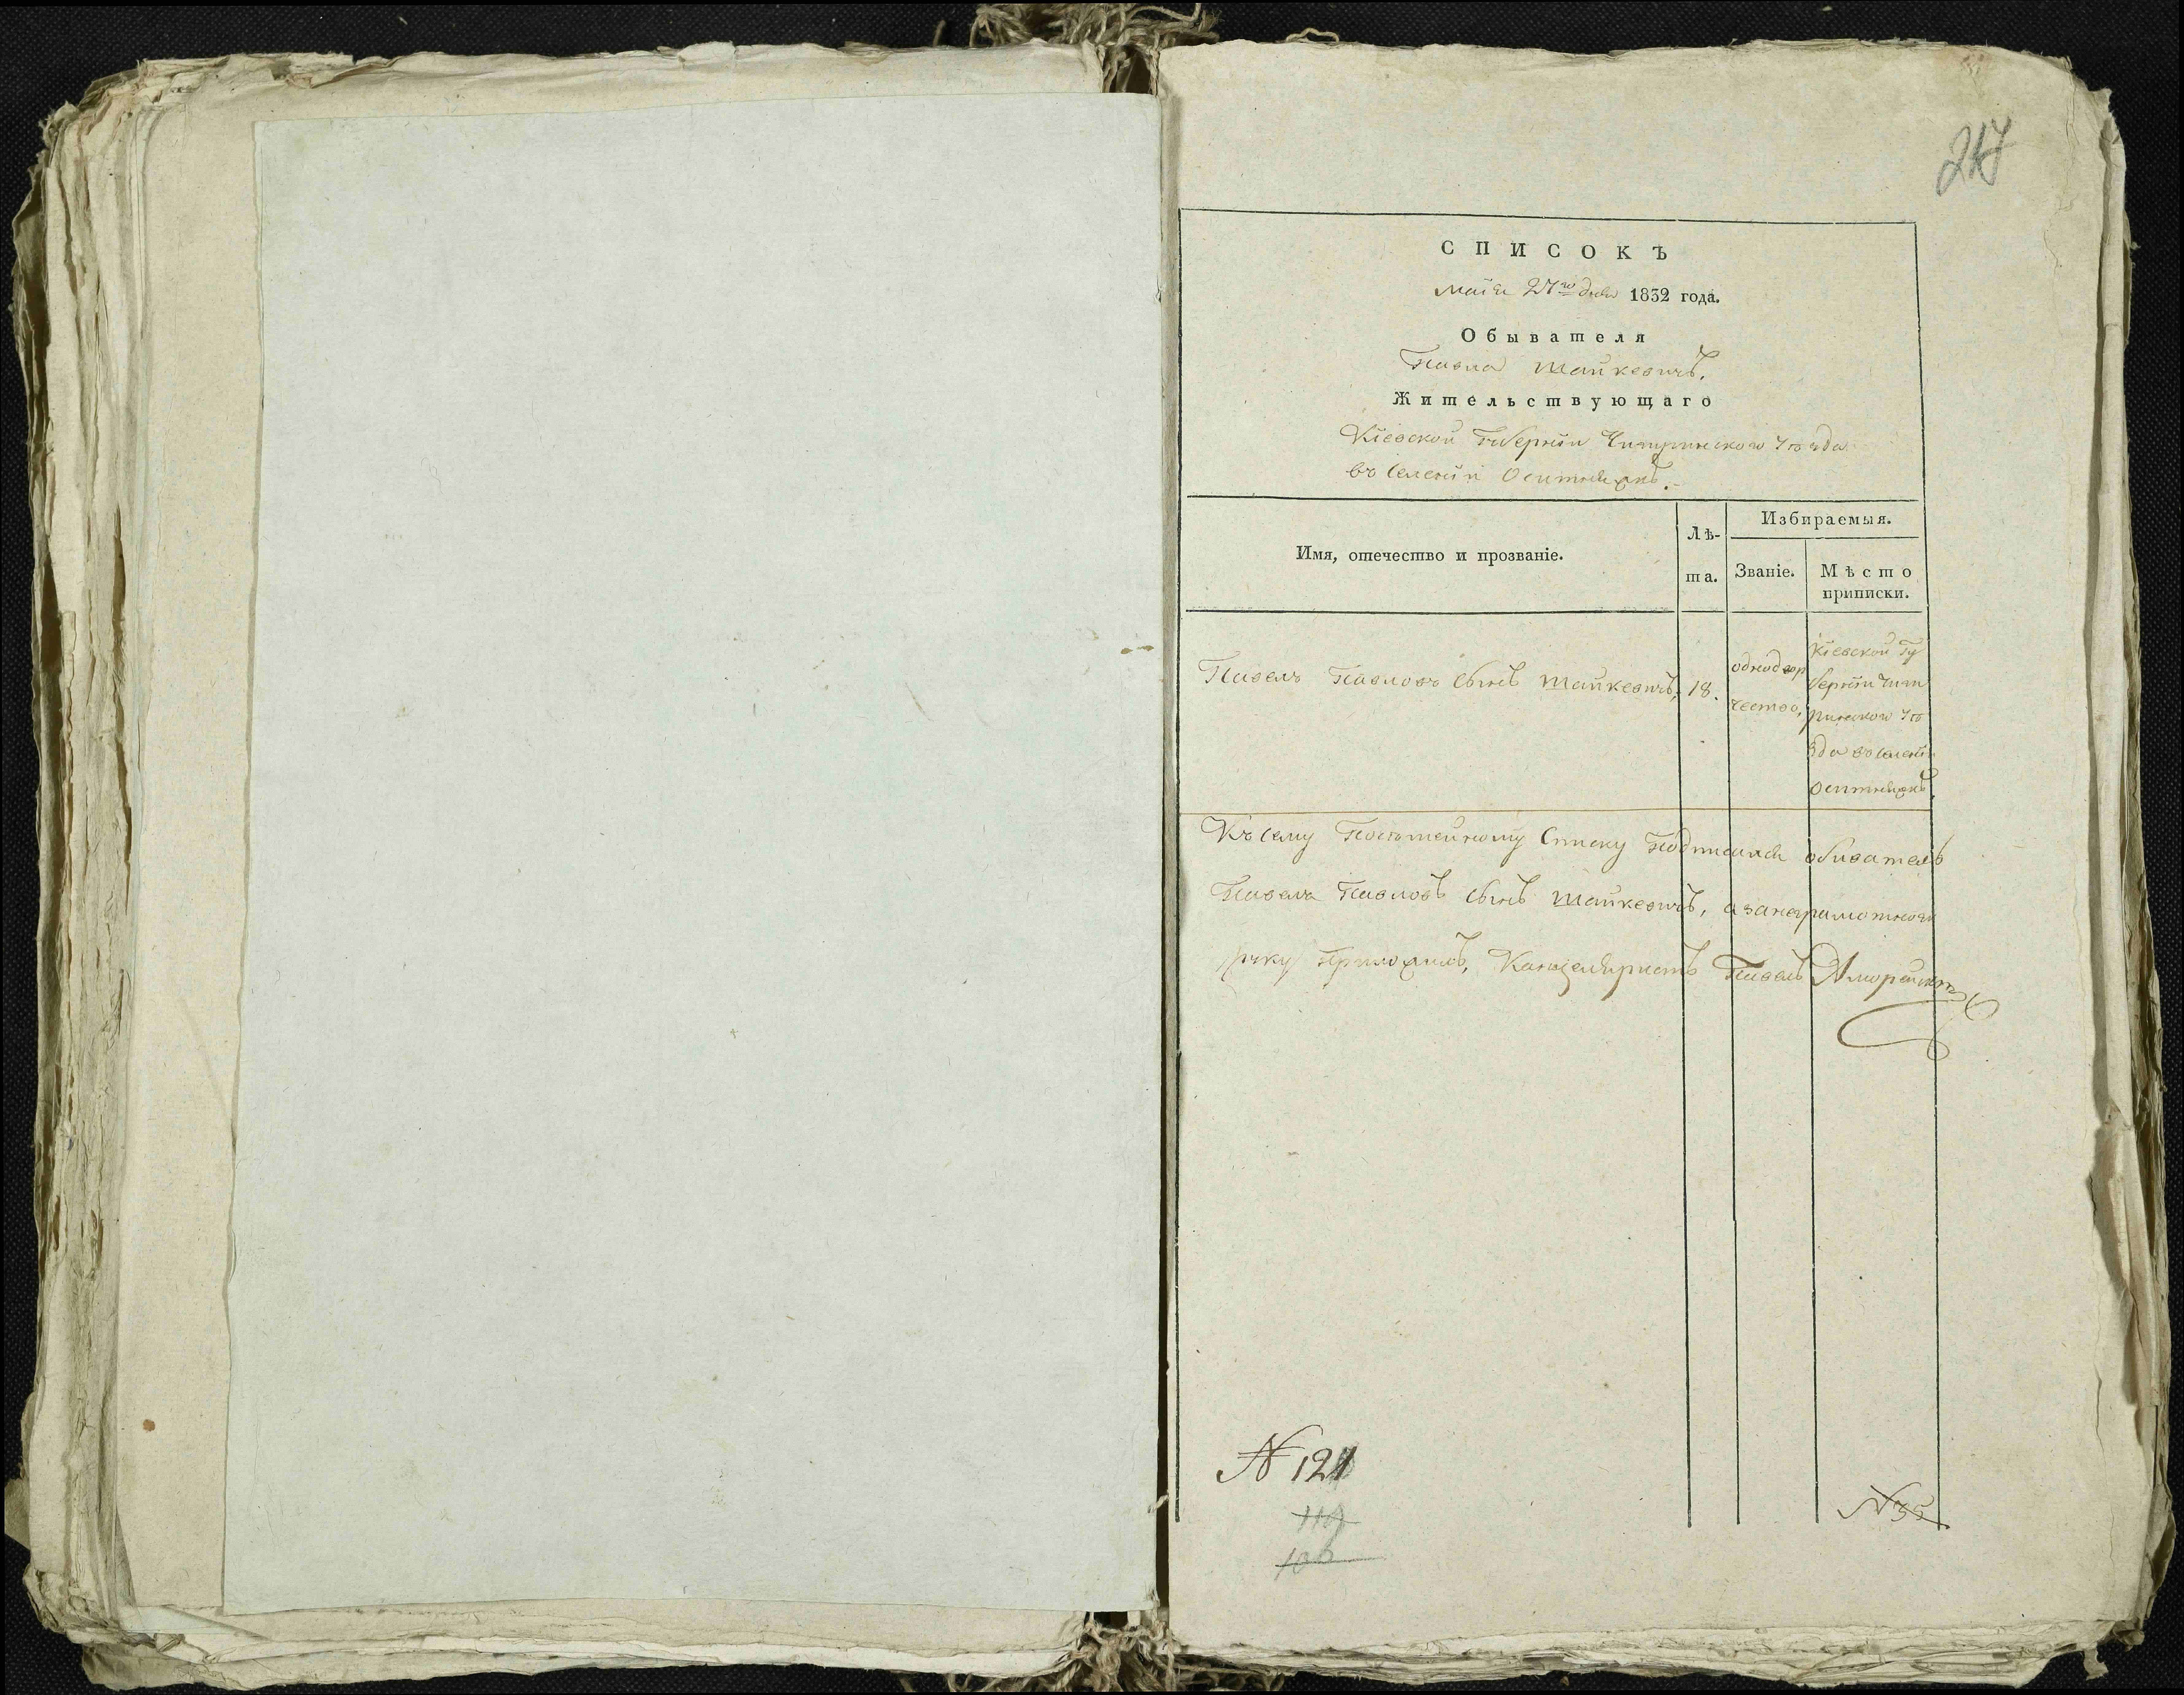 217
СПИСОКЪ
маія 27го дня 1832 года.
Обывателя
Павла Шайкевичъ.
Жительствующаго
Кіевской Губерніи Чигиринского уѣзда
въ селеніи Оситняжкѣ.
Имя, отечество и прозваніе.
Лѣ-
та.
Избираемыя.
Званіе.
Мѣсто
приписки.
Павелъ Павловъ сынъ Шайкевичъ,
18.
однодвор
чество,
Кіевской Гу
берніи Чиги
ринского уѣ
зда въ селеніи
Оситняжкѣ.
Къ сему посѣмейному списку подписался обиватель
Павелъ Павловъ сынъ Шайкевичъ, а за неграмотного
руку приложилъ, Канцеляристъ Павелъ
№ 121
№ 35